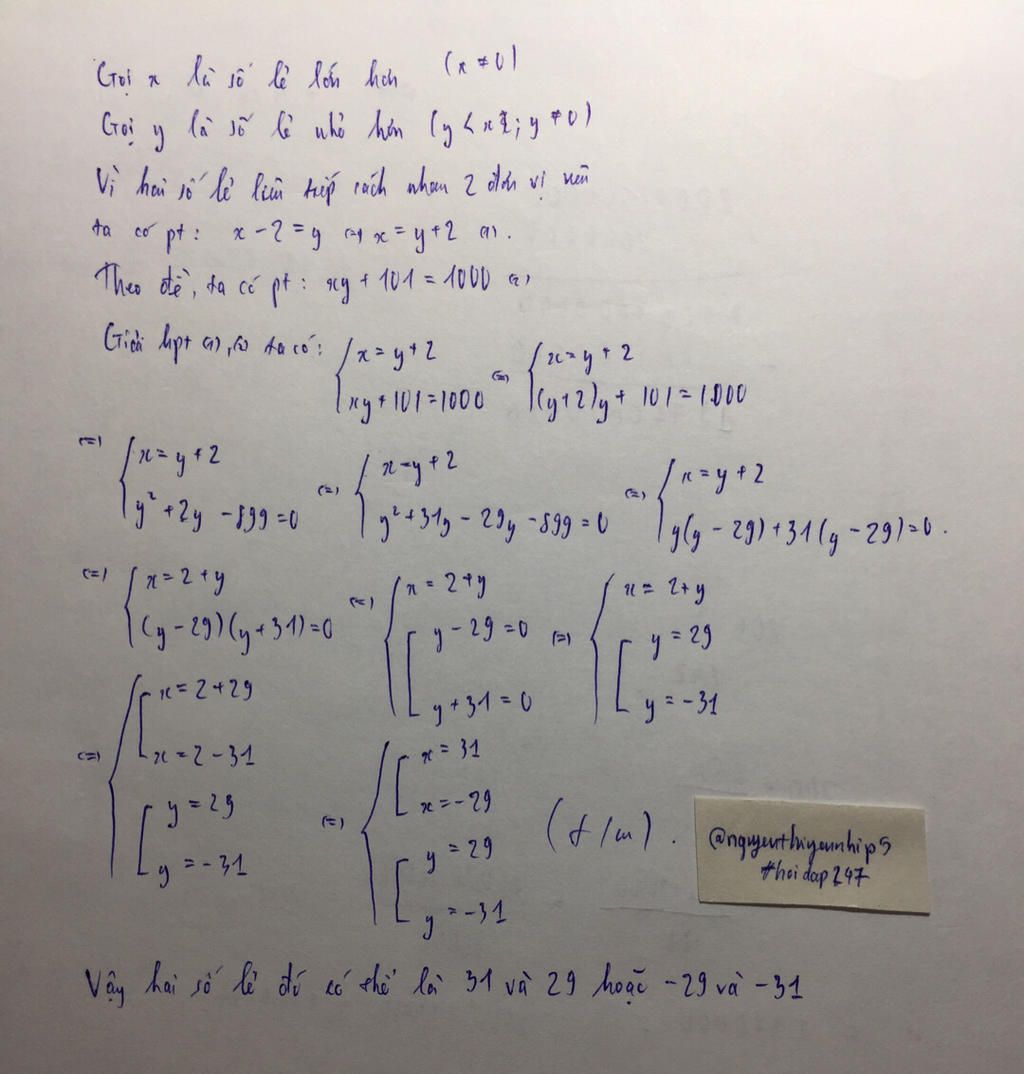 Gọi x là số lẻ lớn hơn (x ≠ 0)
Gọi y là số lẻ nhỏ hơn (y < x; y ≠ 0)
Vì hai số lẻ liên tiếp cách nhau 2 đơn vị nên
ta có pt: x - 2 = y (=) x = y + 2 (1).
Theo đề, ta có pt: xy + 101 = 1000 (2)
Giải hpt (1), (2) ta có: { x = y + 2 (=) { x = y + 2
xy + 101 = 1000 (y + 2)y + 101 = 1000
(=) { x = y + 2 (=) { x = y + 2 (=) { x = y + 2
y² + 2y - 899 = 0 y² + 31y - 29y - 899 = 0 y(y - 29) + 31(y - 29) = 0.
(=) { x = 2 + y (=) { x = 2 + y (=) { x = 2 + y
(y - 29)(y + 31) = 0 [ y - 29 = 0 [ y = 29
y + 31 = 0 y = -31
(=) { [ x = 2 + 29 (=) { [ x = 31
x = 2 - 31 x = -29
[ y = 29 [ y = 29 (t/m).
y = -31 y = -31
@nguyenthiyennhip5
#hoidap247
Vậy hai số lẻ đó có thể là 31 và 29 hoặc -29 và -31